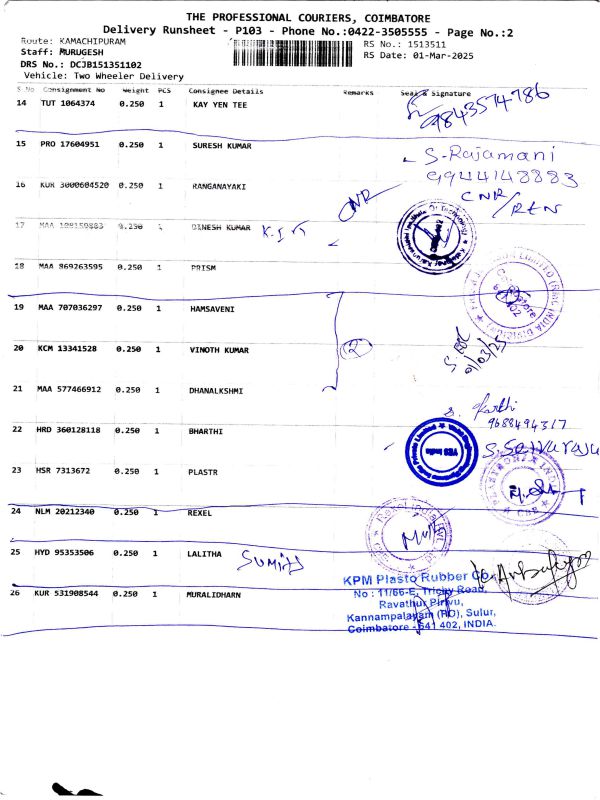 THE PROFESSIONAL COURIERS, COIMBATORE
Delivery Runsheet - P103 - Phone No.:0422-3505555 - Page No.:2
Route: KAMACHIPURAM
RS No.: 1513511
Staff: MURUGESH
RS Date: 01-Mar-2025
DRS No.: DCJB151351102
Vehicle: Two Wheeler Delivery
S.No Consignment No Weight PCS Consignee Details Remarks Seal & Signature
14 TUT 1064374 0.250 1 KAY YEN TEE
9843574786
15 PRO 17604951 0.250 1 SURESH KUMAR
S-Rajamani
9944148883
16 KUR 3000604520 0.250 1 RANGANAYAKI
CNR
CNR/
17 MAA 108159883 0.250 1 DINESH KUMAR
18 MAA 869263595 0.250 1 PRISM
19 MAA 707036297 0.250 1 HAMSAVENI
20 KCM 13341528 0.250 1 VINOTH KUMAR
2
01/03/25
21 MAA 577466912 0.250 1 DHANALKSHMI
9688494317
22 HRD 360128118 0.250 1 BHARTHI
YES India
S.Selvaraju
23 HSR 7313672 0.250 1 PLASTR
24 NLM 20212340 0.250 1 REXEL
25 HYD 95353506 0.250 1 LALITHA
26 KUR 531908544 0.250 1 MURALIDHARN
KPM Plasto Rubber Co.,
No : 11/66-E, Trichy Road,
Ravathur Pirivu,
Kannampalayam (PO), Sulur,
Coimbatore - 641 402, INDIA.